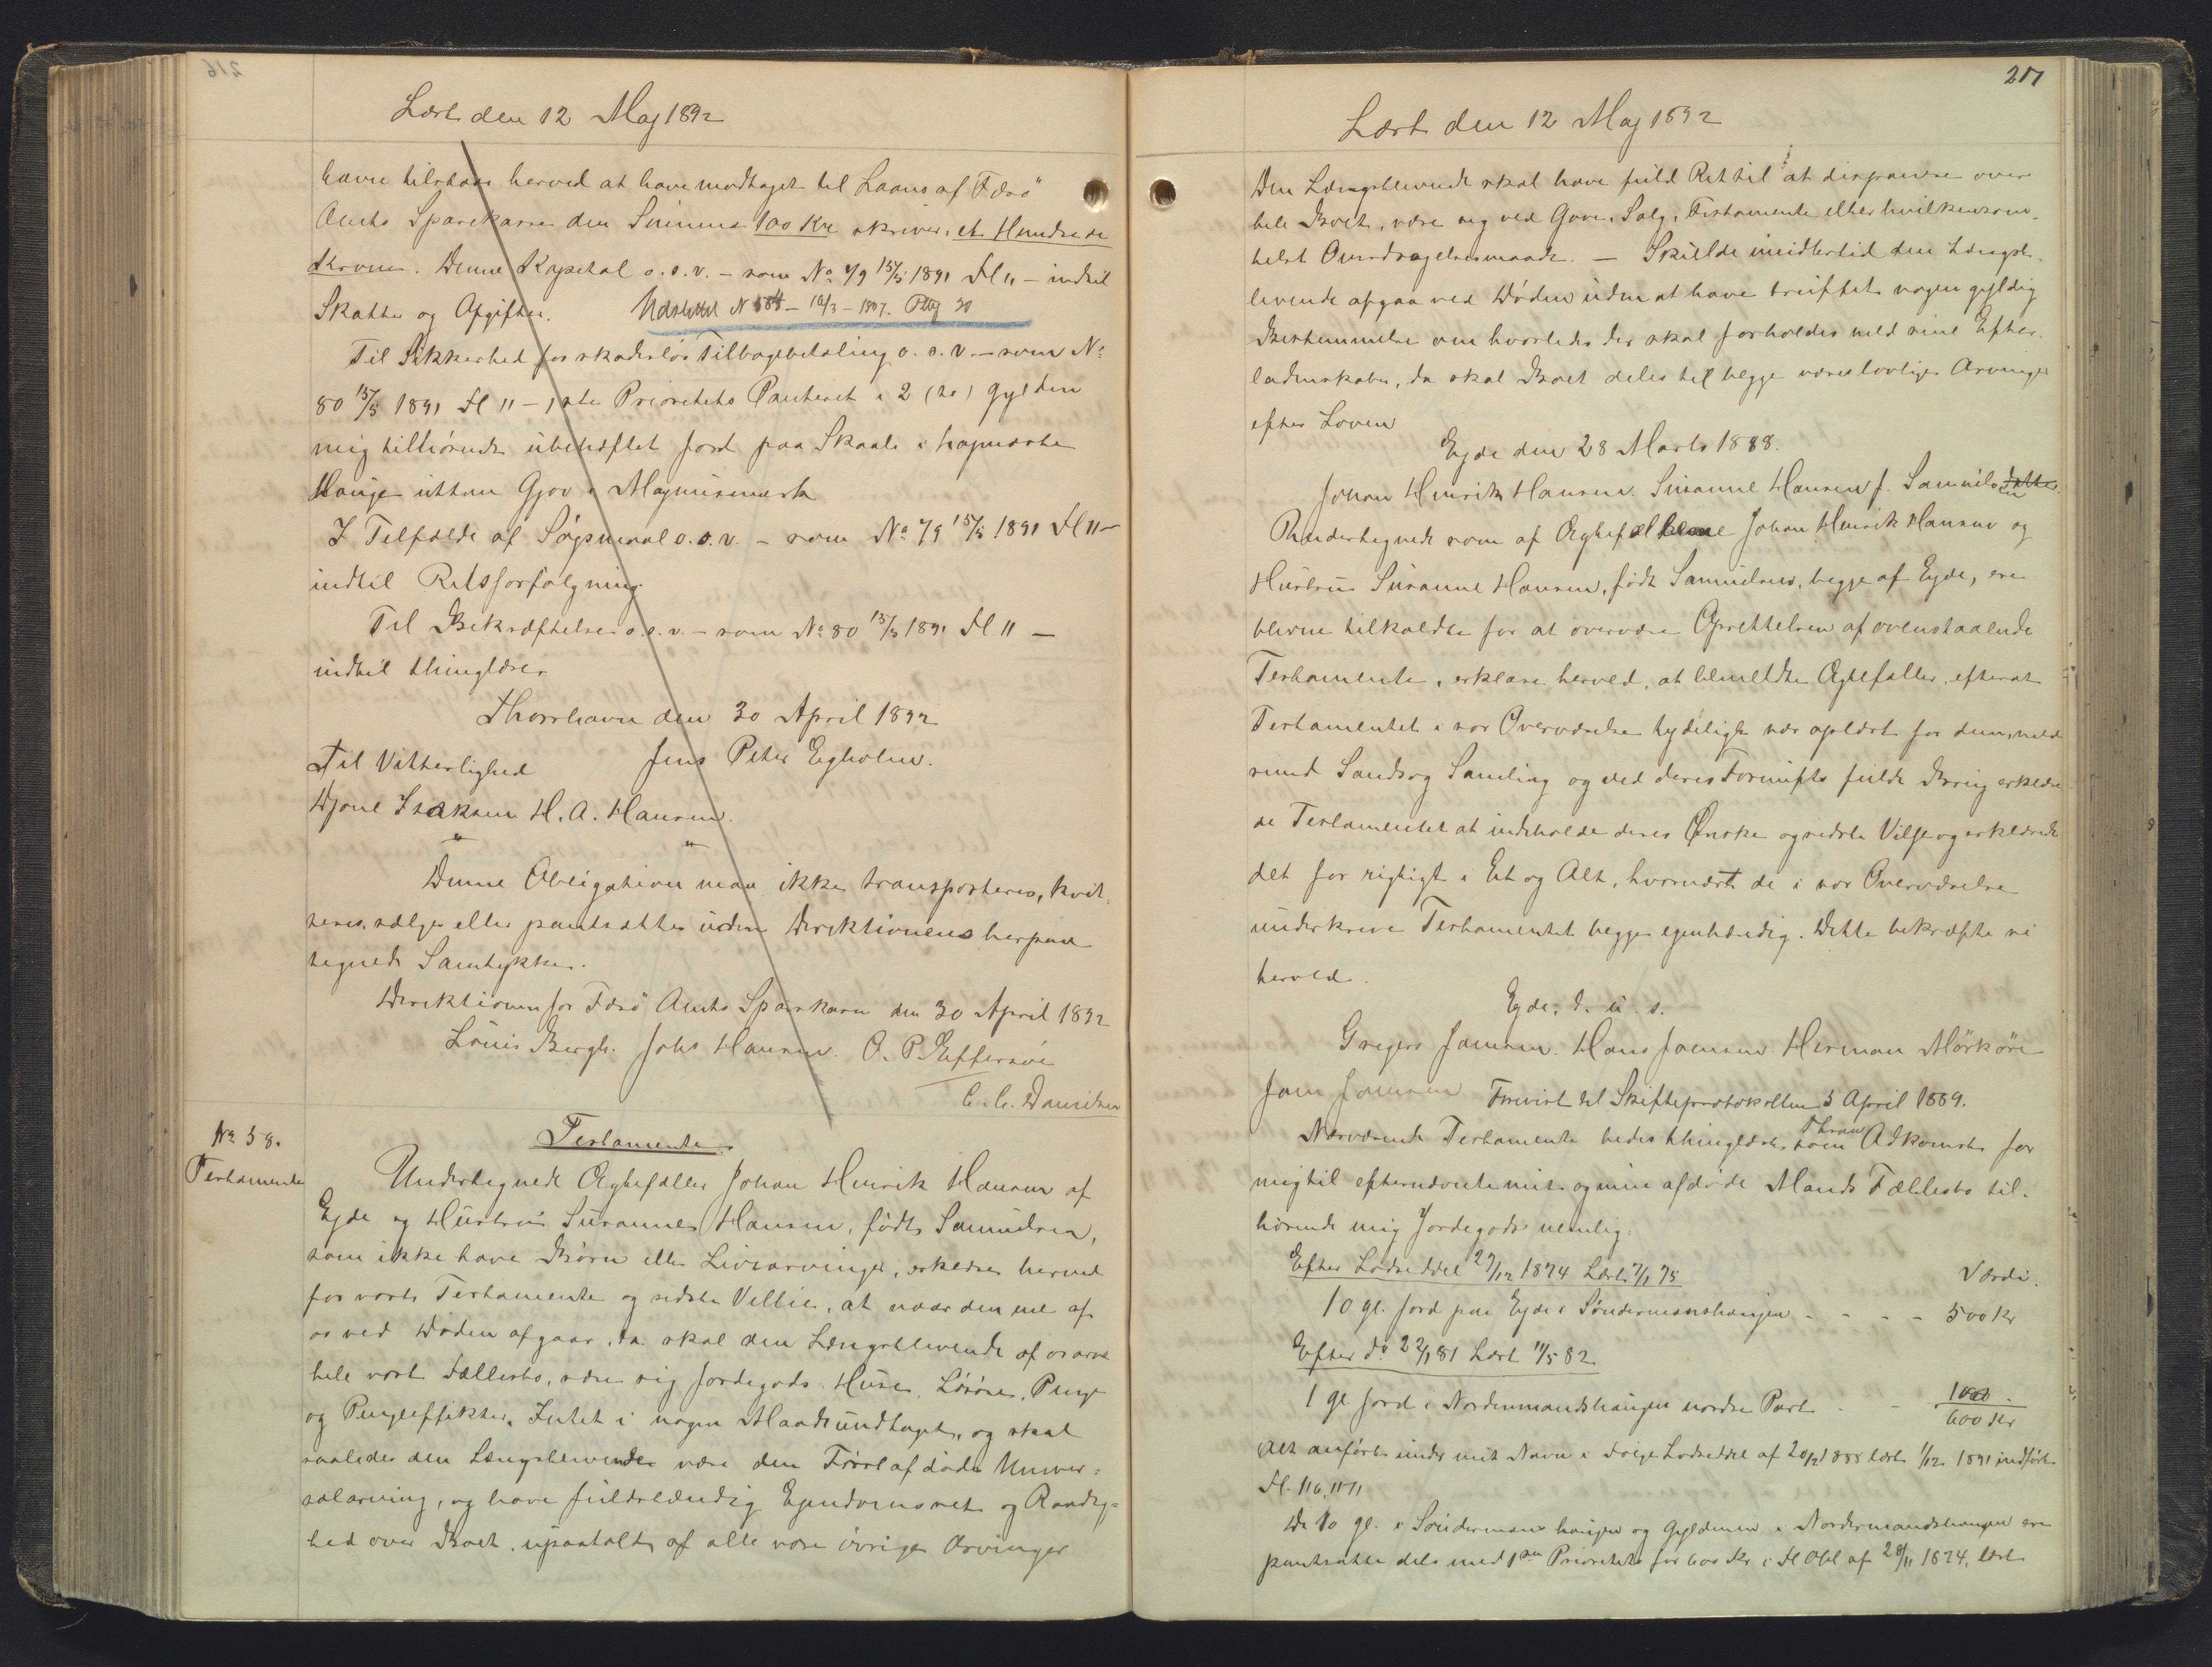 Læst den 12 Maj 1892
havn tilstaar herved at have modtaget til Laans af Færø
Amts Sparekasse den Summa 100 Kr skriver et Hundrede
Kroner. Denne Kapital o.s.v. – som No 79 15/5 1891 Fl 11 – indtil
Skatter og Afgifter. Udslettet N 584 – 16/3 – 1897. Pbg 30
Til Sikkerhed for skadesløs Tilbagebetaling o.s.v. – som No
80 15/5 1891 Fl 11 – 1ste Prioritets Panteret i 2 (to) Gylden
mig tilhørende ubehæftet Jord paa Skaale i
Hauge uttan Gjov i Magnusmørk
I Tilfælde af Søgsmaal o.s.v. – som No 79 15/5 1891 Fl 11 –
indtil Retsforfølgning.
Til Bekræftelse o.s.v. – som No 80 15/5 1891 Fl. 11 –
indtil thinglæses
Thorshavn den 30 April 1892
Til Vitterlighed Jens Peter Egholm.
Djone Isaksen H. A. Hansen.
" "
Denne Obligation maa ikke transporteres, kvit-
teres, sælges eller pantsættes uden Direktionens herpaa
tegnede Samtykke.
Direktionen for Færø Amts Sparekasse den 30 April 1892
Louis Bergh. Johs Hansen. O. P. Effersøe
C. C. Danielsen
No 58.
Testamente
Testamente
Undertegnede Ægtefæller Johan Henrik Hansen af
Ejde og Hustru Susanne Hansen, født Samuelsen,
som ikke have Børn eller Livsarvinger, erklære herved
for vort Testamente og sidste Villie, at naar den ene af
os ved Døden afgaar, da skal den Længstlevende af os arve
hele vort Fællesbo, være sig Jordegods, Huse, Løsøre, Penge
og Pengeeffekter, Intet i nogen Maade undtaget, og skal
saaledes den Længstlevende være den Førstafdødes Univer-
salarving, og have fuldstændig Ejendomsret og Raadig-
hed over Boet, upaatalt af alle vore øvrige Arvinger
217
Læst den 12 Maj 1892
Den Længstlevende skal have fuld Ret til at disponere over
hele Boet, være sig ved Gave, Salg, Testamente eller hvilkensom-
helst Overdragelsesmaade. – Skulde imidlertid den Længst-
levende afgaa ved Døden uden at have truffet nogen gyldig
Bestemmelse om hvorledes der skal forholdes med sine Efter-
ladenskaber, da skal Boet deles til begge vores lovlige Arvinger
efter Loven
Ejde den 28 Marts 1888.
Johan Henrik Hansen. Susanne Hansen f. Samuelsdatter
en
Undertegnede som af Ægtefællerne Johan Henrik Hansen og
Hustru Susanne Hansen, født Samuelsen, begge af Ejde, ere
blevne tilkaldte for at overvære Oprettelsen af ovenstaaende
Testamente, erklære herved, at bemeldte Ægtefæller, efterat
Testamentet i vor Overværelse tydeligt var oplæst for dem, med
sund Sands og Samling og ved deres Fornufts fulde Brug erklære-
de Testamentet at indeholde deres Ønske og sidste Vilje og erklærede
det for rigtigt i Et og Alt, hvornæst de i vor Overværelse
underskreve Testamentet begge egenhændig. Dette bekræfte vi
herved.
Ejde, d. u. s.
Gregers Joensen. Hans Joensen Herman Mørkøre
Joen Joensen Forevist til Skifteprotokollen 5 April 1889.
Nærværende Testamente bedes thinglæst som Adkomst for
mig til efternævnte mit og min afdøde Mands Fællesbo til-
hørende mig Jordegods nemlig.
Efter Lodseddel 29/12 1874 Læst 7/1 75 Værdi.
10 gl. Jord paa Ejde i Søndermanshaugen - - - - 500 Kr
Efter do 22/1 81 Læst 11/5 82
1 gl Jord i Nordenmandshaugen nordre Part - - 100 -
600 Kr
Alt anført under mit Navn i Følge Lodseddel af 20/12 1888 læst 1/12 1891 indført
Fl. 116, 117
De 10 gl. i Søndermanshaugen og Gyldenen i Nordermandshaugen ere
pantsatte dels med 1ste Prioritet for 600 Kr i Fl Obl af 28/11 1874, læst